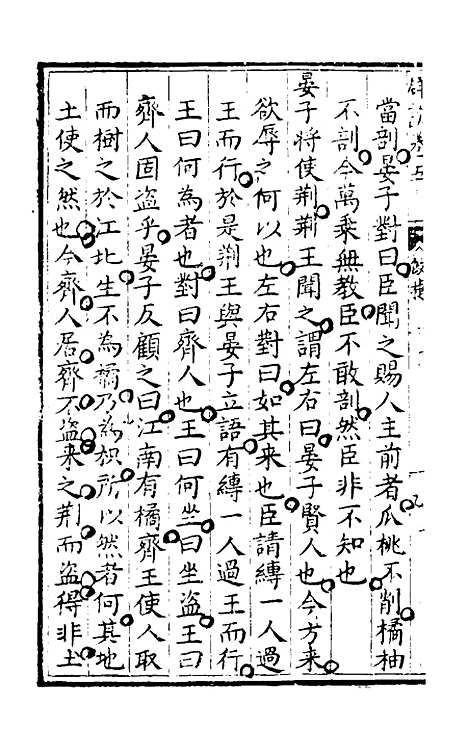 當剖晏子對曰臣聞之賜人主前者瓜桃不削橘柚
不剖今萬乘無教臣不敢剖然臣非不知也
晏子將使荆荆王聞之謂左右曰晏子賢人也今方來
欲辱之何以也左右對曰如其来也臣請縛一人過
王而行於是荆王與晏子立語有縛一人過王而行
王曰何為者也對曰齊人也王曰何坐曰坐盗王曰
齊人固盗乎晏子反顧之曰江南有橘齊王使人取
而樹之於江北生不為橘乃為枳所以然者何其地
土使之然也今齊人居齊不盗来之荆而盗得非土